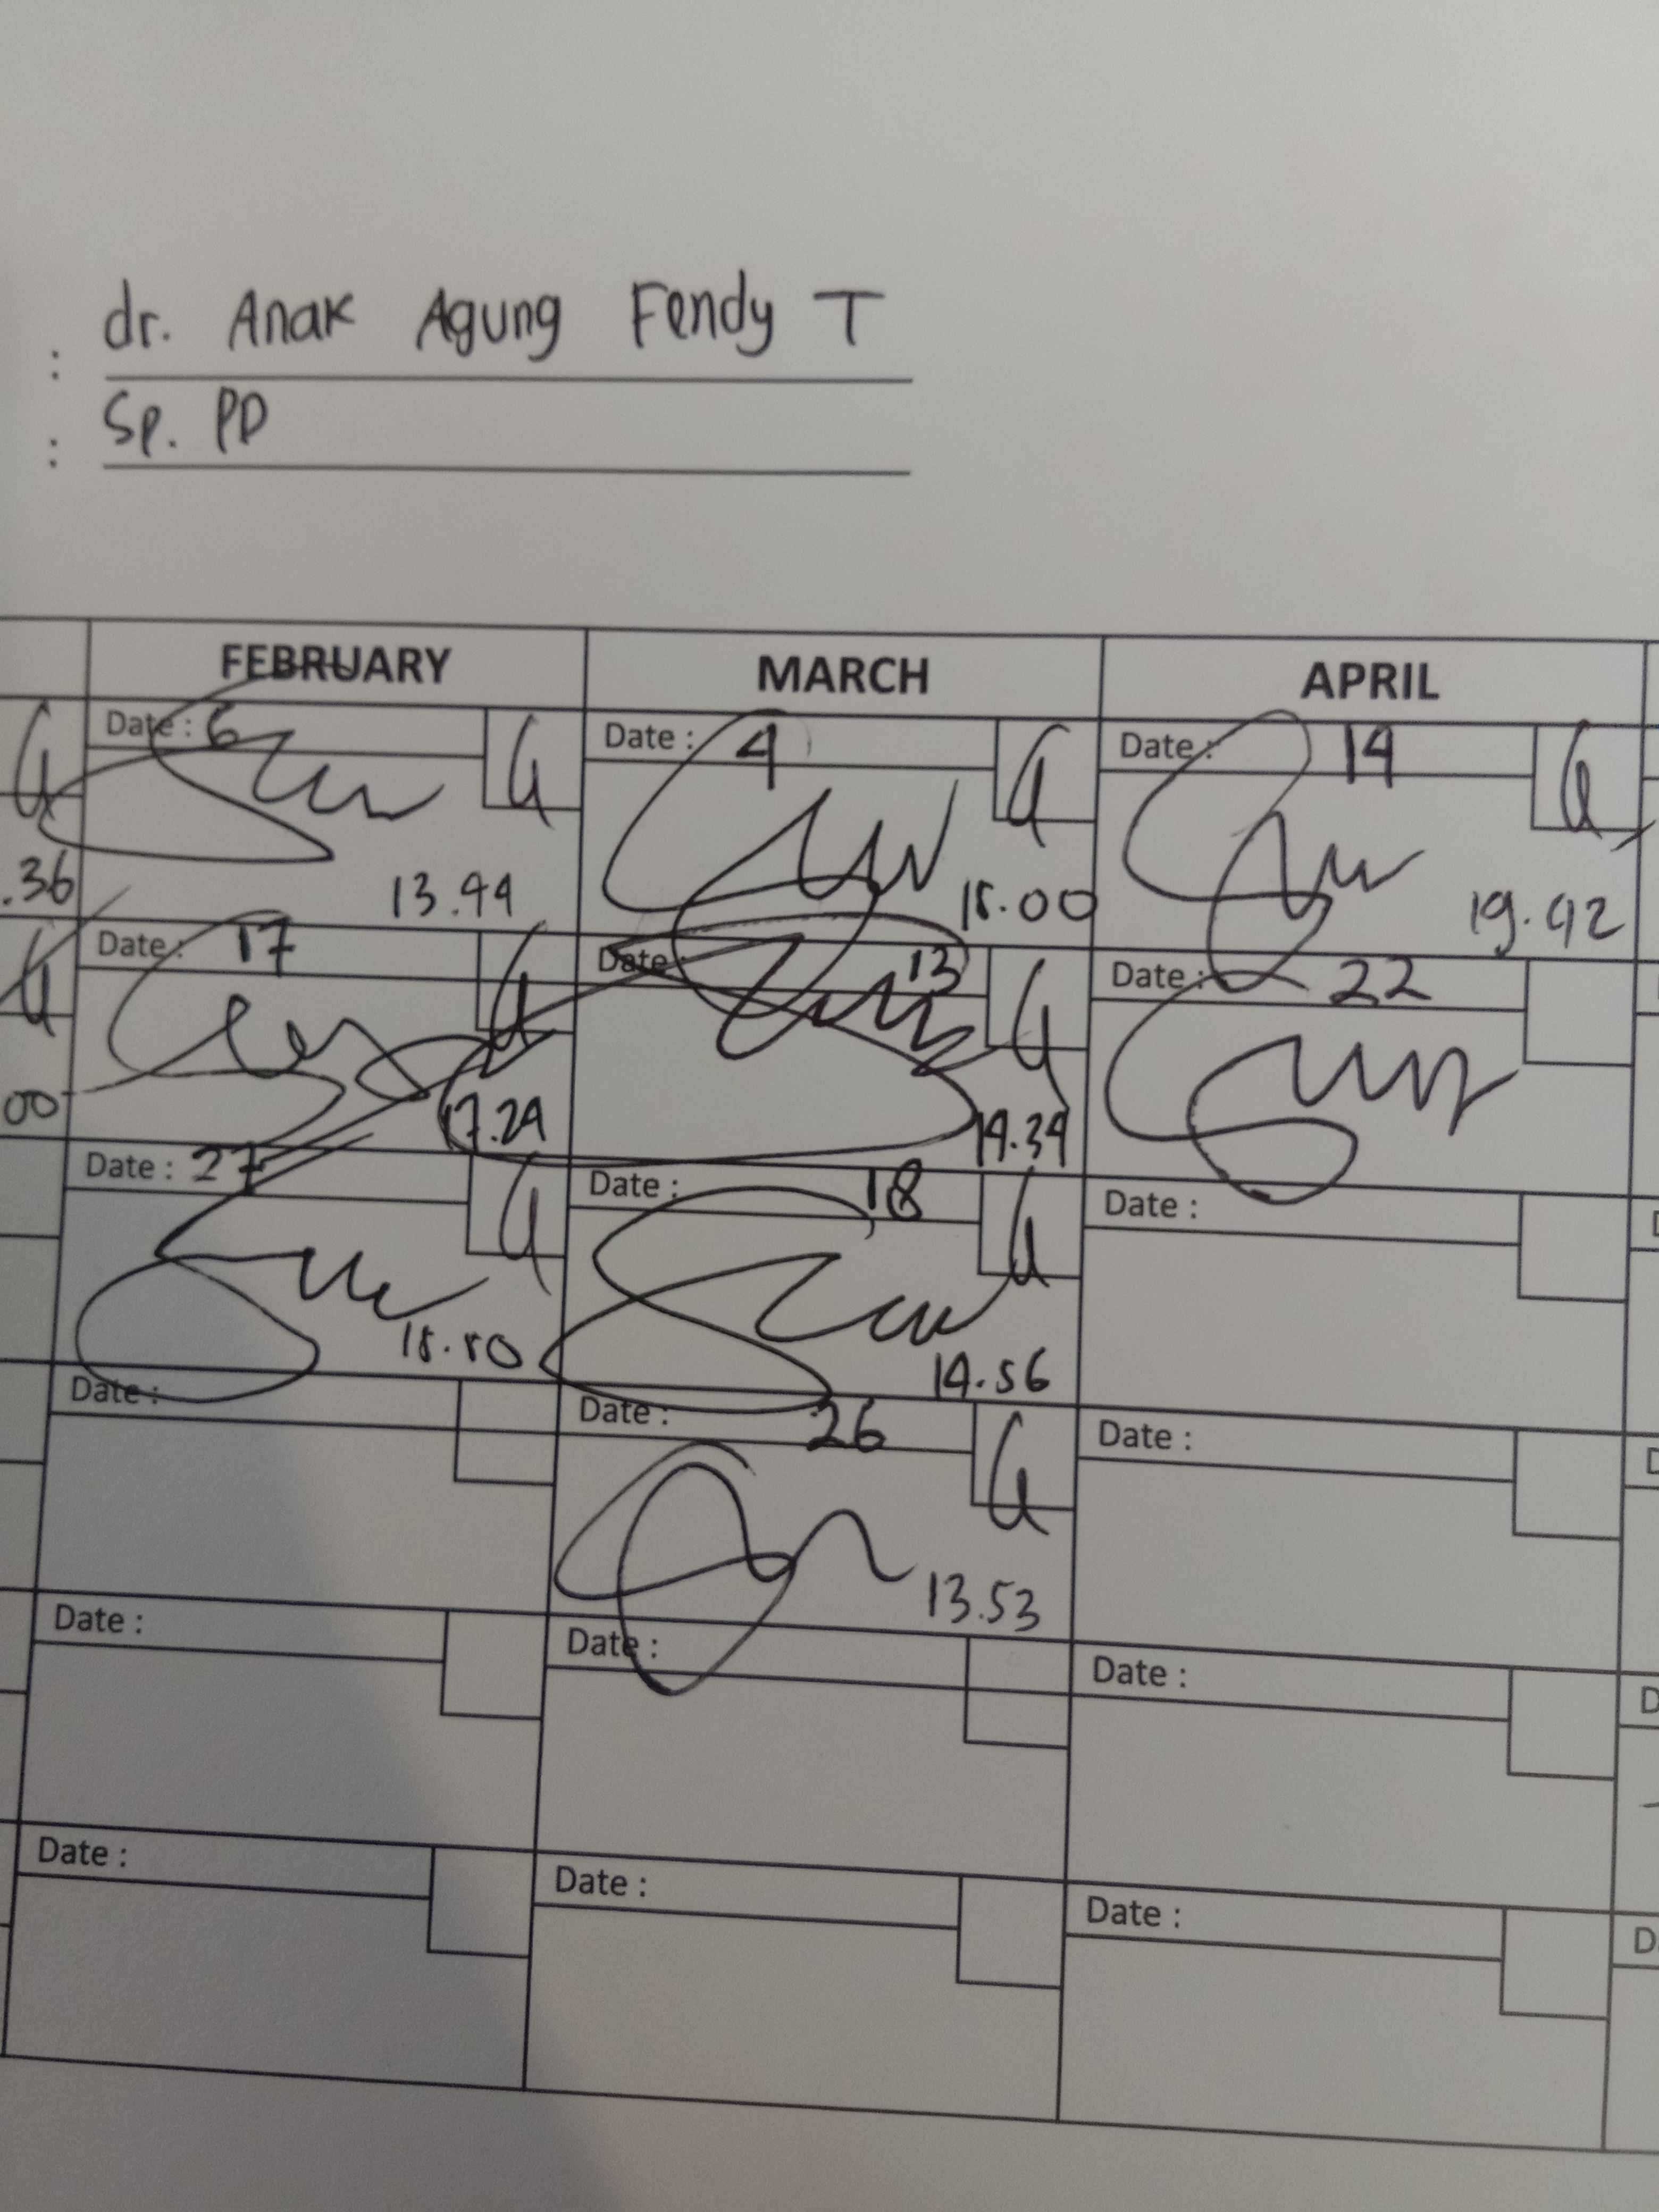 : dr. Anak Agung Fendy T
: Sp. PD
FEBRUARY MARCH APRIL
Date : 6 Date : 4 Date : 14
.36 13.44 15.00 19.42
Date : 17 Date : 13 Date : 22
00 17.24 14.34
Date : 27 Date : 18 Date :
15.50 14.56
Date : Date : 26 Date :
13.53
Date : Date : Date :
Date : Date : Date :